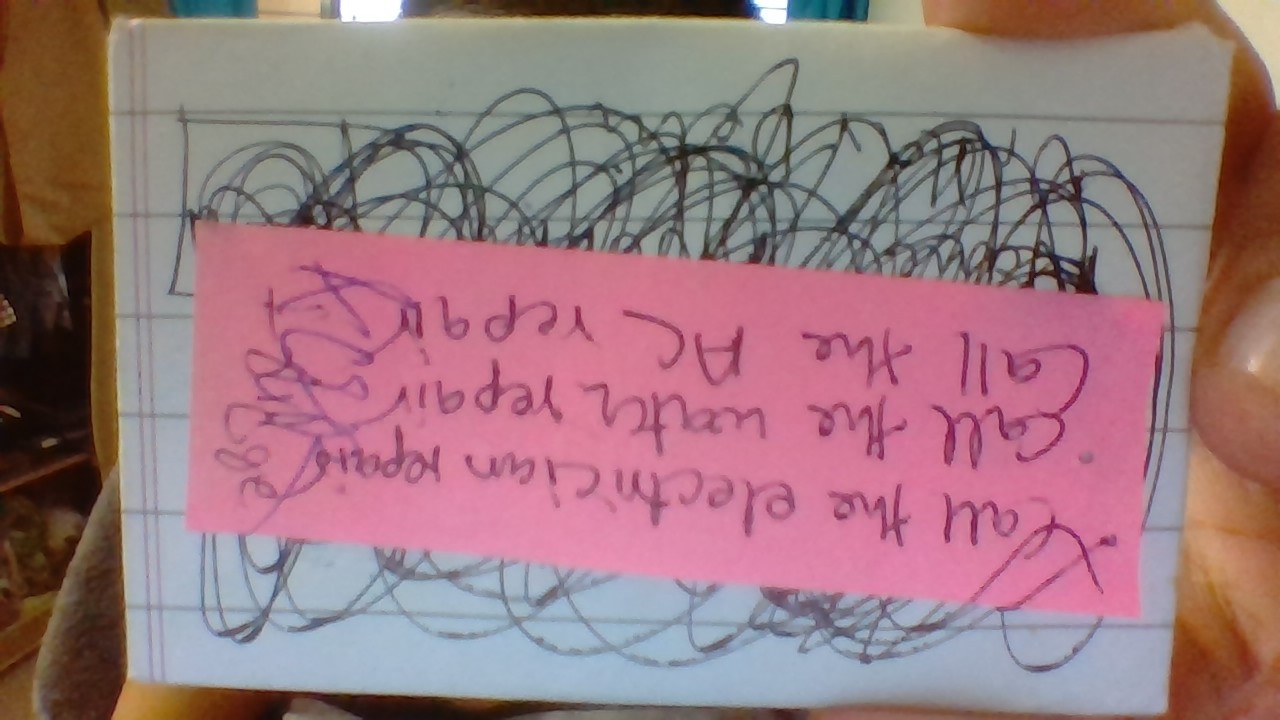 Call the electrician repairs
Call the water repair
Call the AC repair